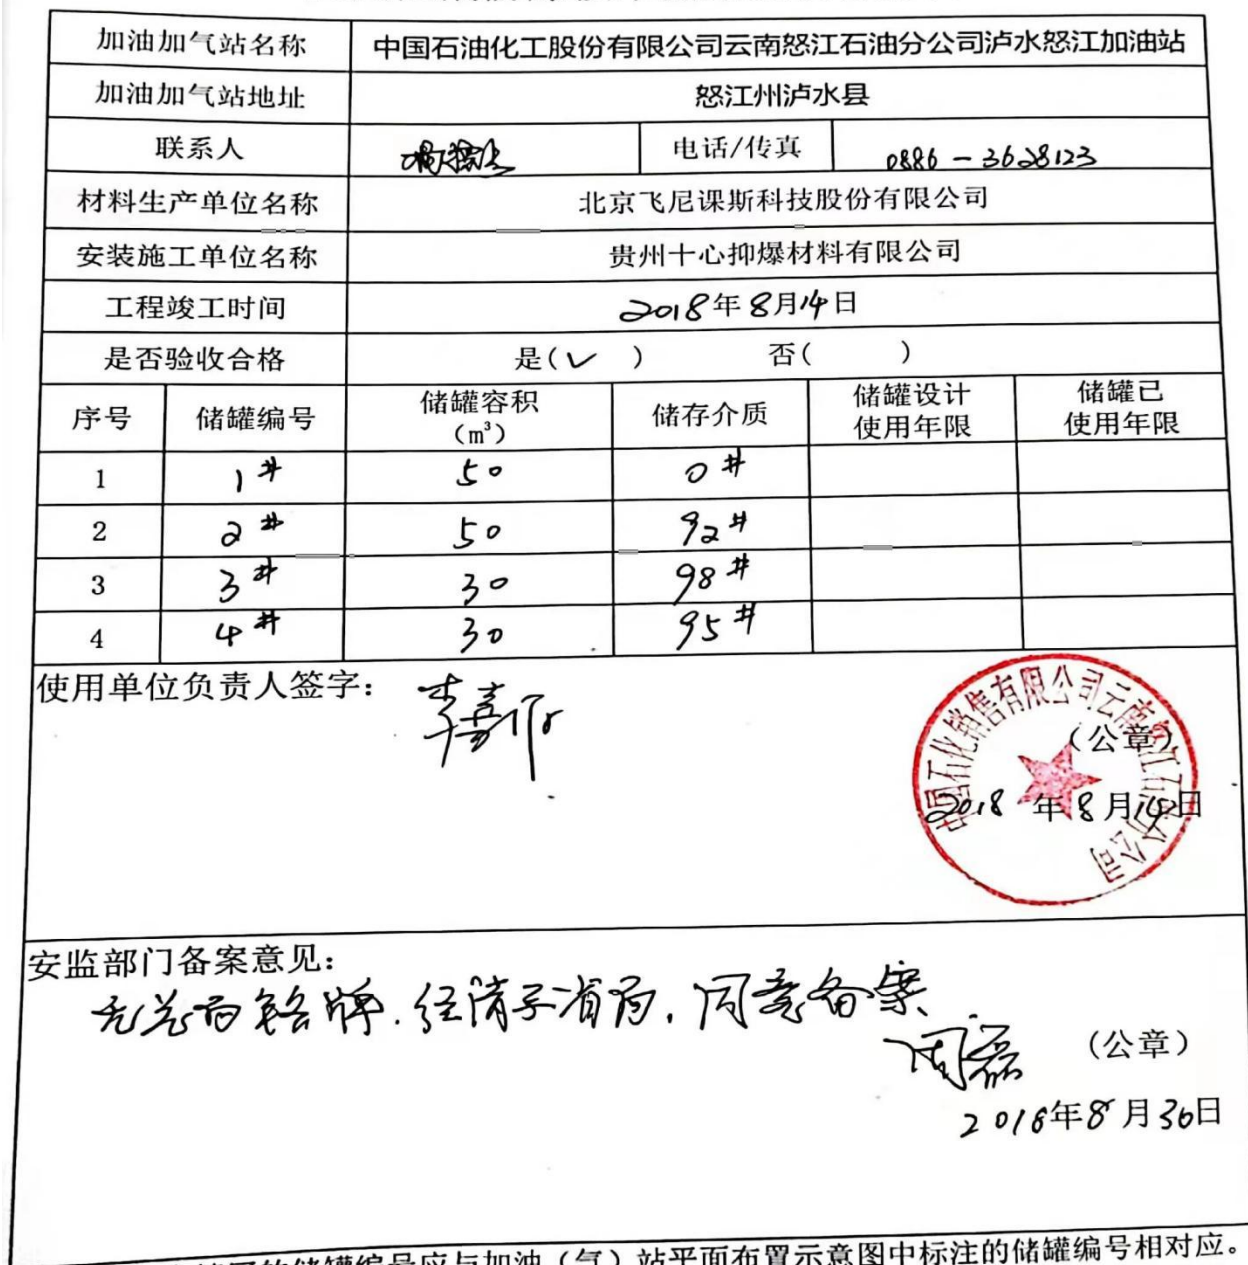 加油加气站名称 中国石油化工股份有限公司云南怒江石油分公司泸水怒江加油站
加油加气站地址 怒江州泸水县
联系人 电话/传真 0886-3628123
材料生产单位名称 北京飞尼课斯科技股份有限公司
安装施工单位名称 贵州十心抑爆材料有限公司
工程竣工时间 2018年8月14日
是否验收合格 是(✓ ) 否( )
序号 储罐编号 储罐容积(m³) 储存介质 储罐设计使用年限 储罐已使用年限
1 1# 50 0#
2 2# 50 92#
3 3# 30 98#
4 4# 30 95#
使用单位负责人签字:
中国石化销售有限公司云南怒江石油分公司
(公章)
2018年8月14日
安监部门备案意见:
铭牌.经请示省局,同意备案
周磊 (公章)
2018年8月30日
的储罐编号应与加油(气)站平面布置示意图中标注的储罐编号相对应。